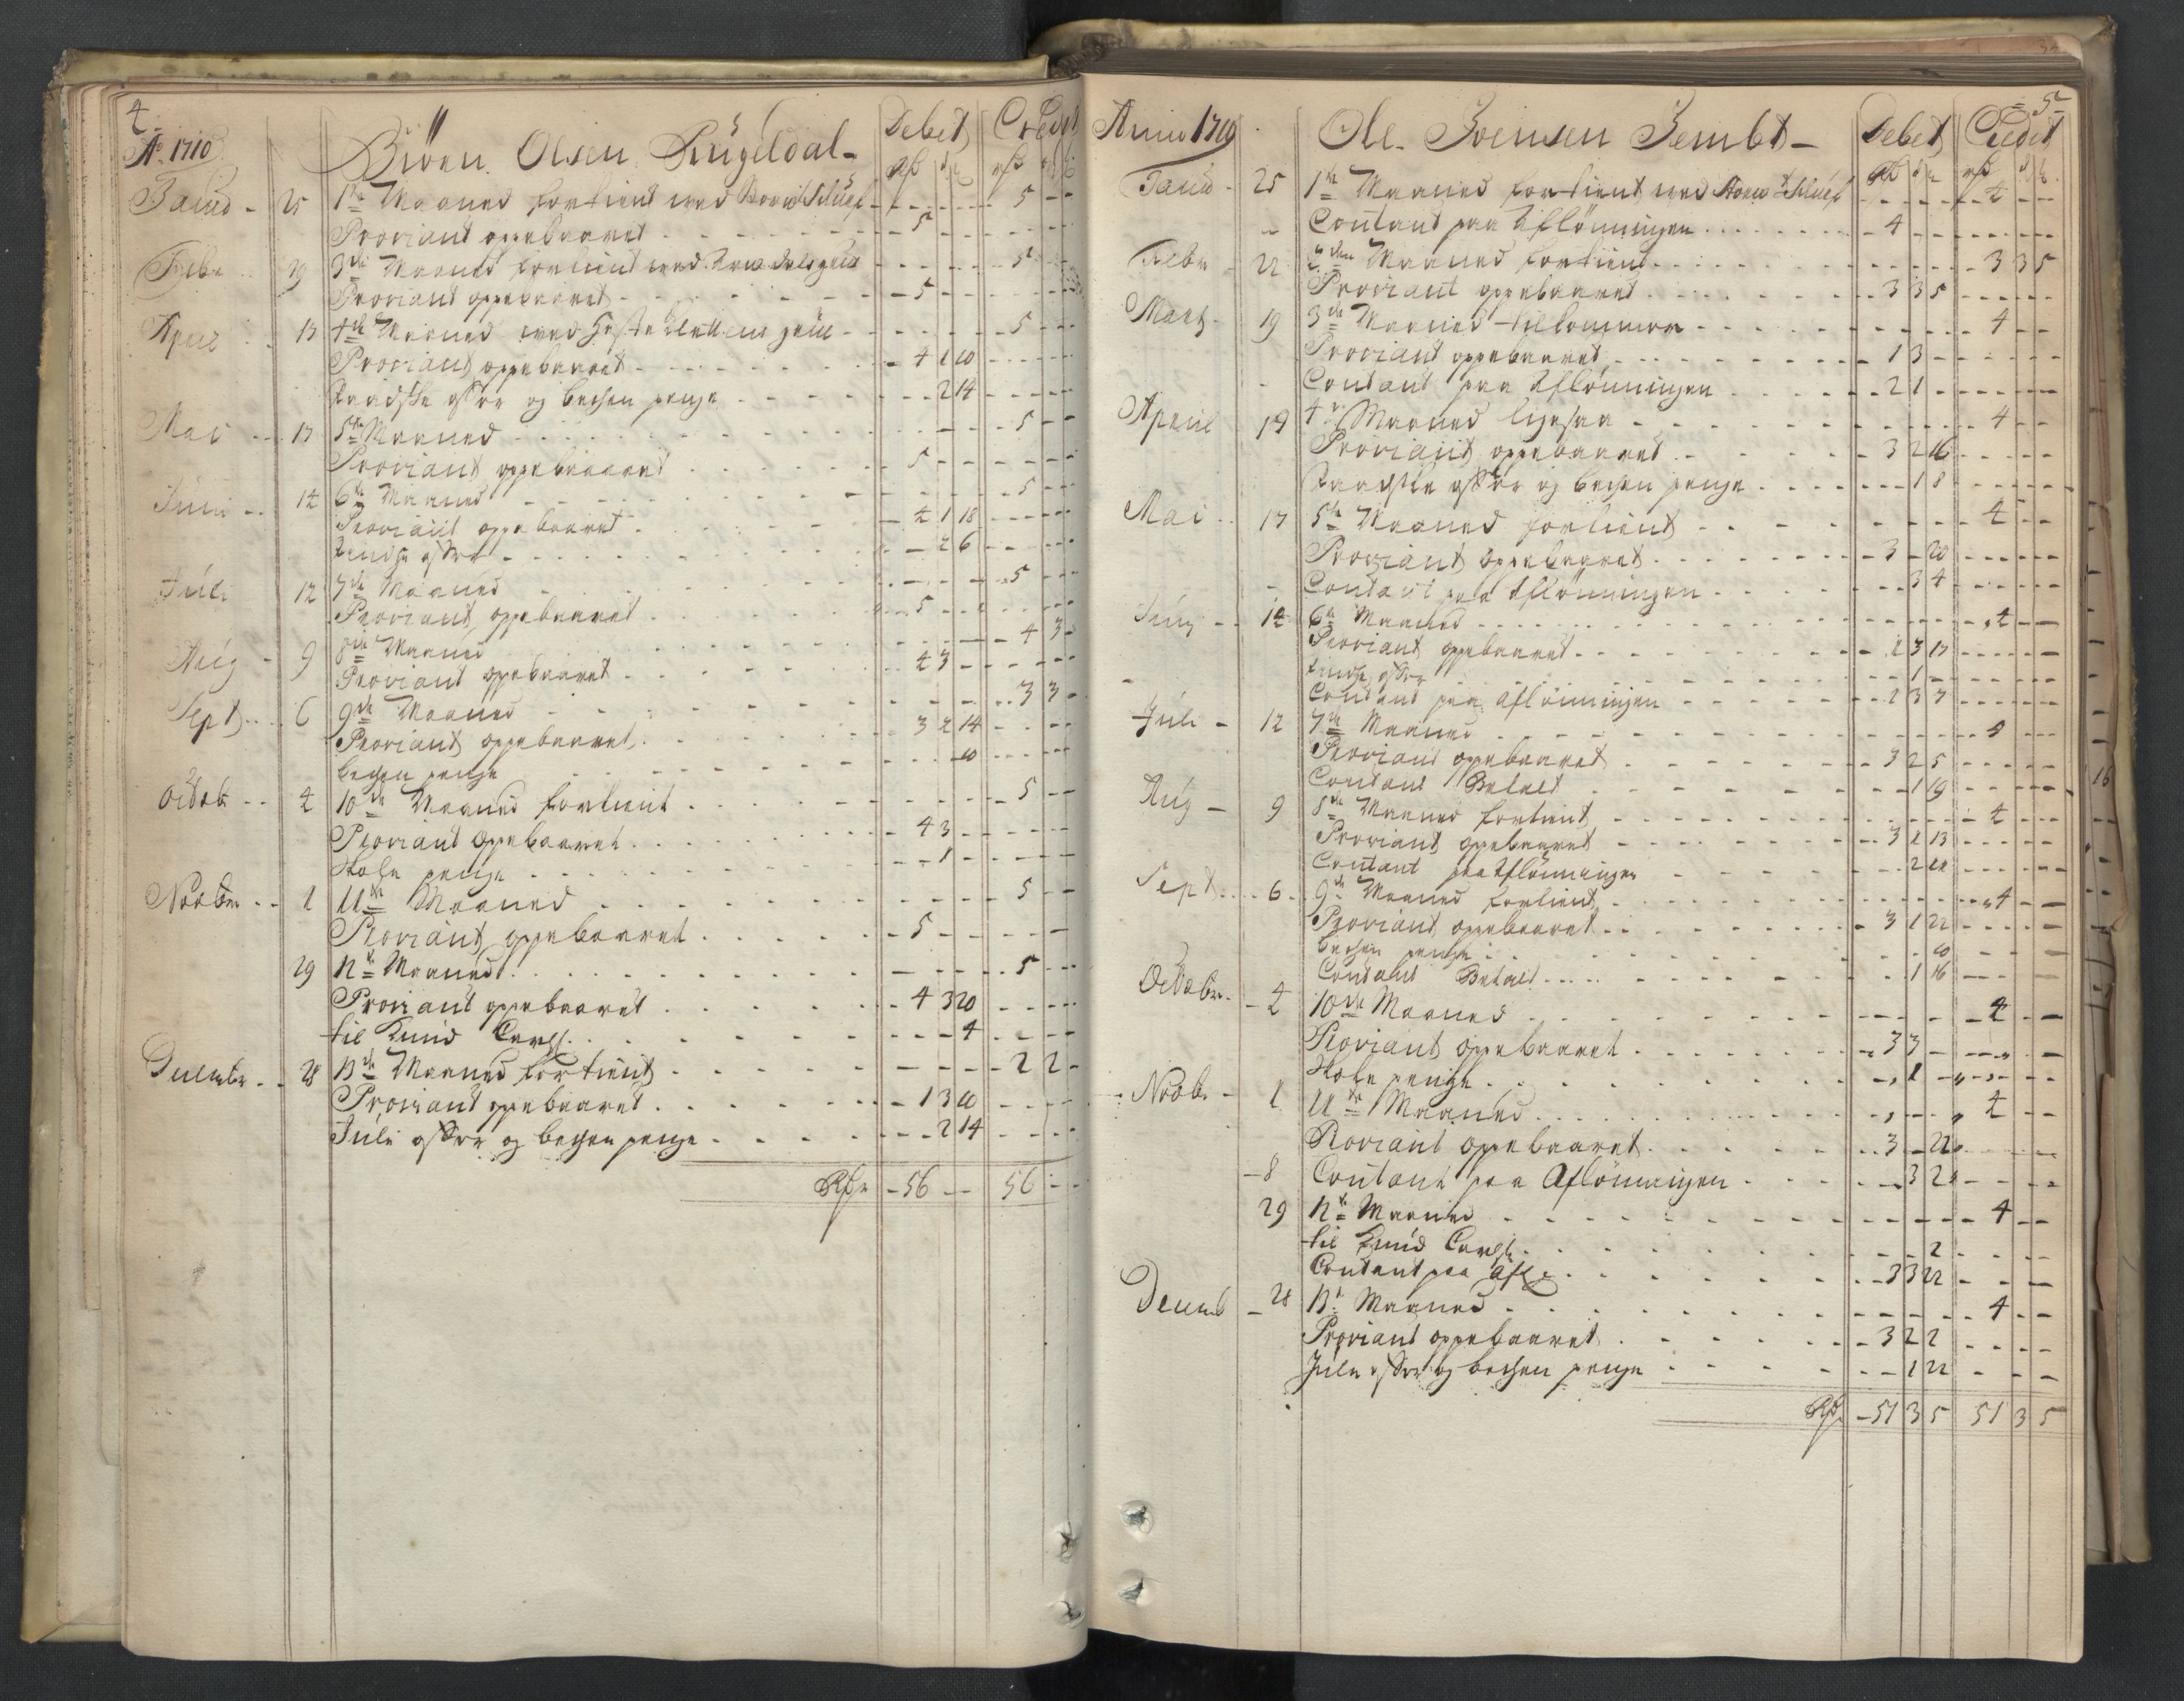 4
Ao. 1710 Biörn Olsen Ringeldal Debet Credit
Janu 25 1te Maaned fortient med - - 5 - -
Proviant oppebaaret - 5 - -
Febr 19 3de Maaned fortient med - - 5 - -
Proviant oppebaaret - 5 - -
April 17 4de Maaned med - - 5 - -
Proviant oppebaaret - 4 1 10
offer og bechen penge - - 2 14
Mai 17 5te Maaned - - 5 - -
Proviant oppebaaret 5 - -
Juni 14 6te Maaned - - 5 - -
Proviant oppebaaret - 4 1 18
offer - - 2 6
Juli 12 7de Maaned - - 5 - -
Proviant oppebaaret - 5 - -
Aug 9 8de Maaned - - 4 3 -
Proviant oppebaaret 4 3 -
Sept 6 9de Maaned - - 3 3 -
Proviant oppebaaret 3 2 14
bechen penge - - 10
Octob 4 10de Maaned fortient - - 5 - -
Proviant oppebaaret - 4 3 -
Skole penge - - 1 -
Novbr 1 11te Maaned - - 5 - -
Proviant oppebaaret - 5 - -
29 12te Maaned - - 5 - -
Proviant oppebaaret - 4 3 20
til Knud Carls. - - 4
Decembr 28 13de Maaned fortient - - 2 2 -
Proviant oppebaaret - 1 3 10
Jule offer og bechen penge - - 2 14
Rdr - 56 - - 56 - -
5
Anno 1710 Ole Svensen Sembt Debet Credit
Janu 25 1te Maaned fortient med - - 4 - -
Contant paa Aflönningen - 4 - -
Febr 22 2den Maaned fortient - - 3 3 5
Proviant oppebaaret 3 3 5
Marty 19 3de Maaned tilkommer - - 4 - -
Proviant oppebaaret - 1 3 -
Contant paa Aflönningen - 2 1 -
Apriil 19 4de Maaned ligesaa - - 4 - -
Proviant oppebaaret - 3 2 16
offer og bechen penge - - 1 8
Mai 17 5te Maaned fortient - - 4 - -
Proviant oppebaaret - 3 - 20
Contant paa Aflönningen - - 3 4
Juny 14 6te Maaned - - 4 - -
Proviant oppebaaret - 2 3 17
offer - - 1 -
Contant paa Aflönningen - 2 3 7
Juli 12 7de Maaned
Proviant oppebaaret - 3 2 5
Contant Betalt - - 1 19
Aug 9 8de Maaned fortient - - 4 - -
Proviant oppebaaret - 3 1 13
Contant paa Aflönningen - - 2
Sept 6 9de Maaned fortient - - 4 - -
Proviant oppebaaret - 3 1 22
bechen penge - - 10
Contant Betalt - - 1 16
Octobr 4 10de Maaned - - 4 - -
Proviant oppebaaret - 3 3 -
Skole penge - - 1 -
Novbr 1 11te Maaned - - 4 - -
Proviant oppebaaret - 3 -
8 Contant paa Aflönningen - - 3
29 12te Maaned - - 4 - -
til Knud Carls. - - 2
Contant paa afl. - 3 3 22
Decemb 28 13de Maaned - - 4 - -
Proviant oppebaaret - 3 2 2
Jule offer og bechen penge - - 1 22
Rdr - 51 3 5 51 3 5
16